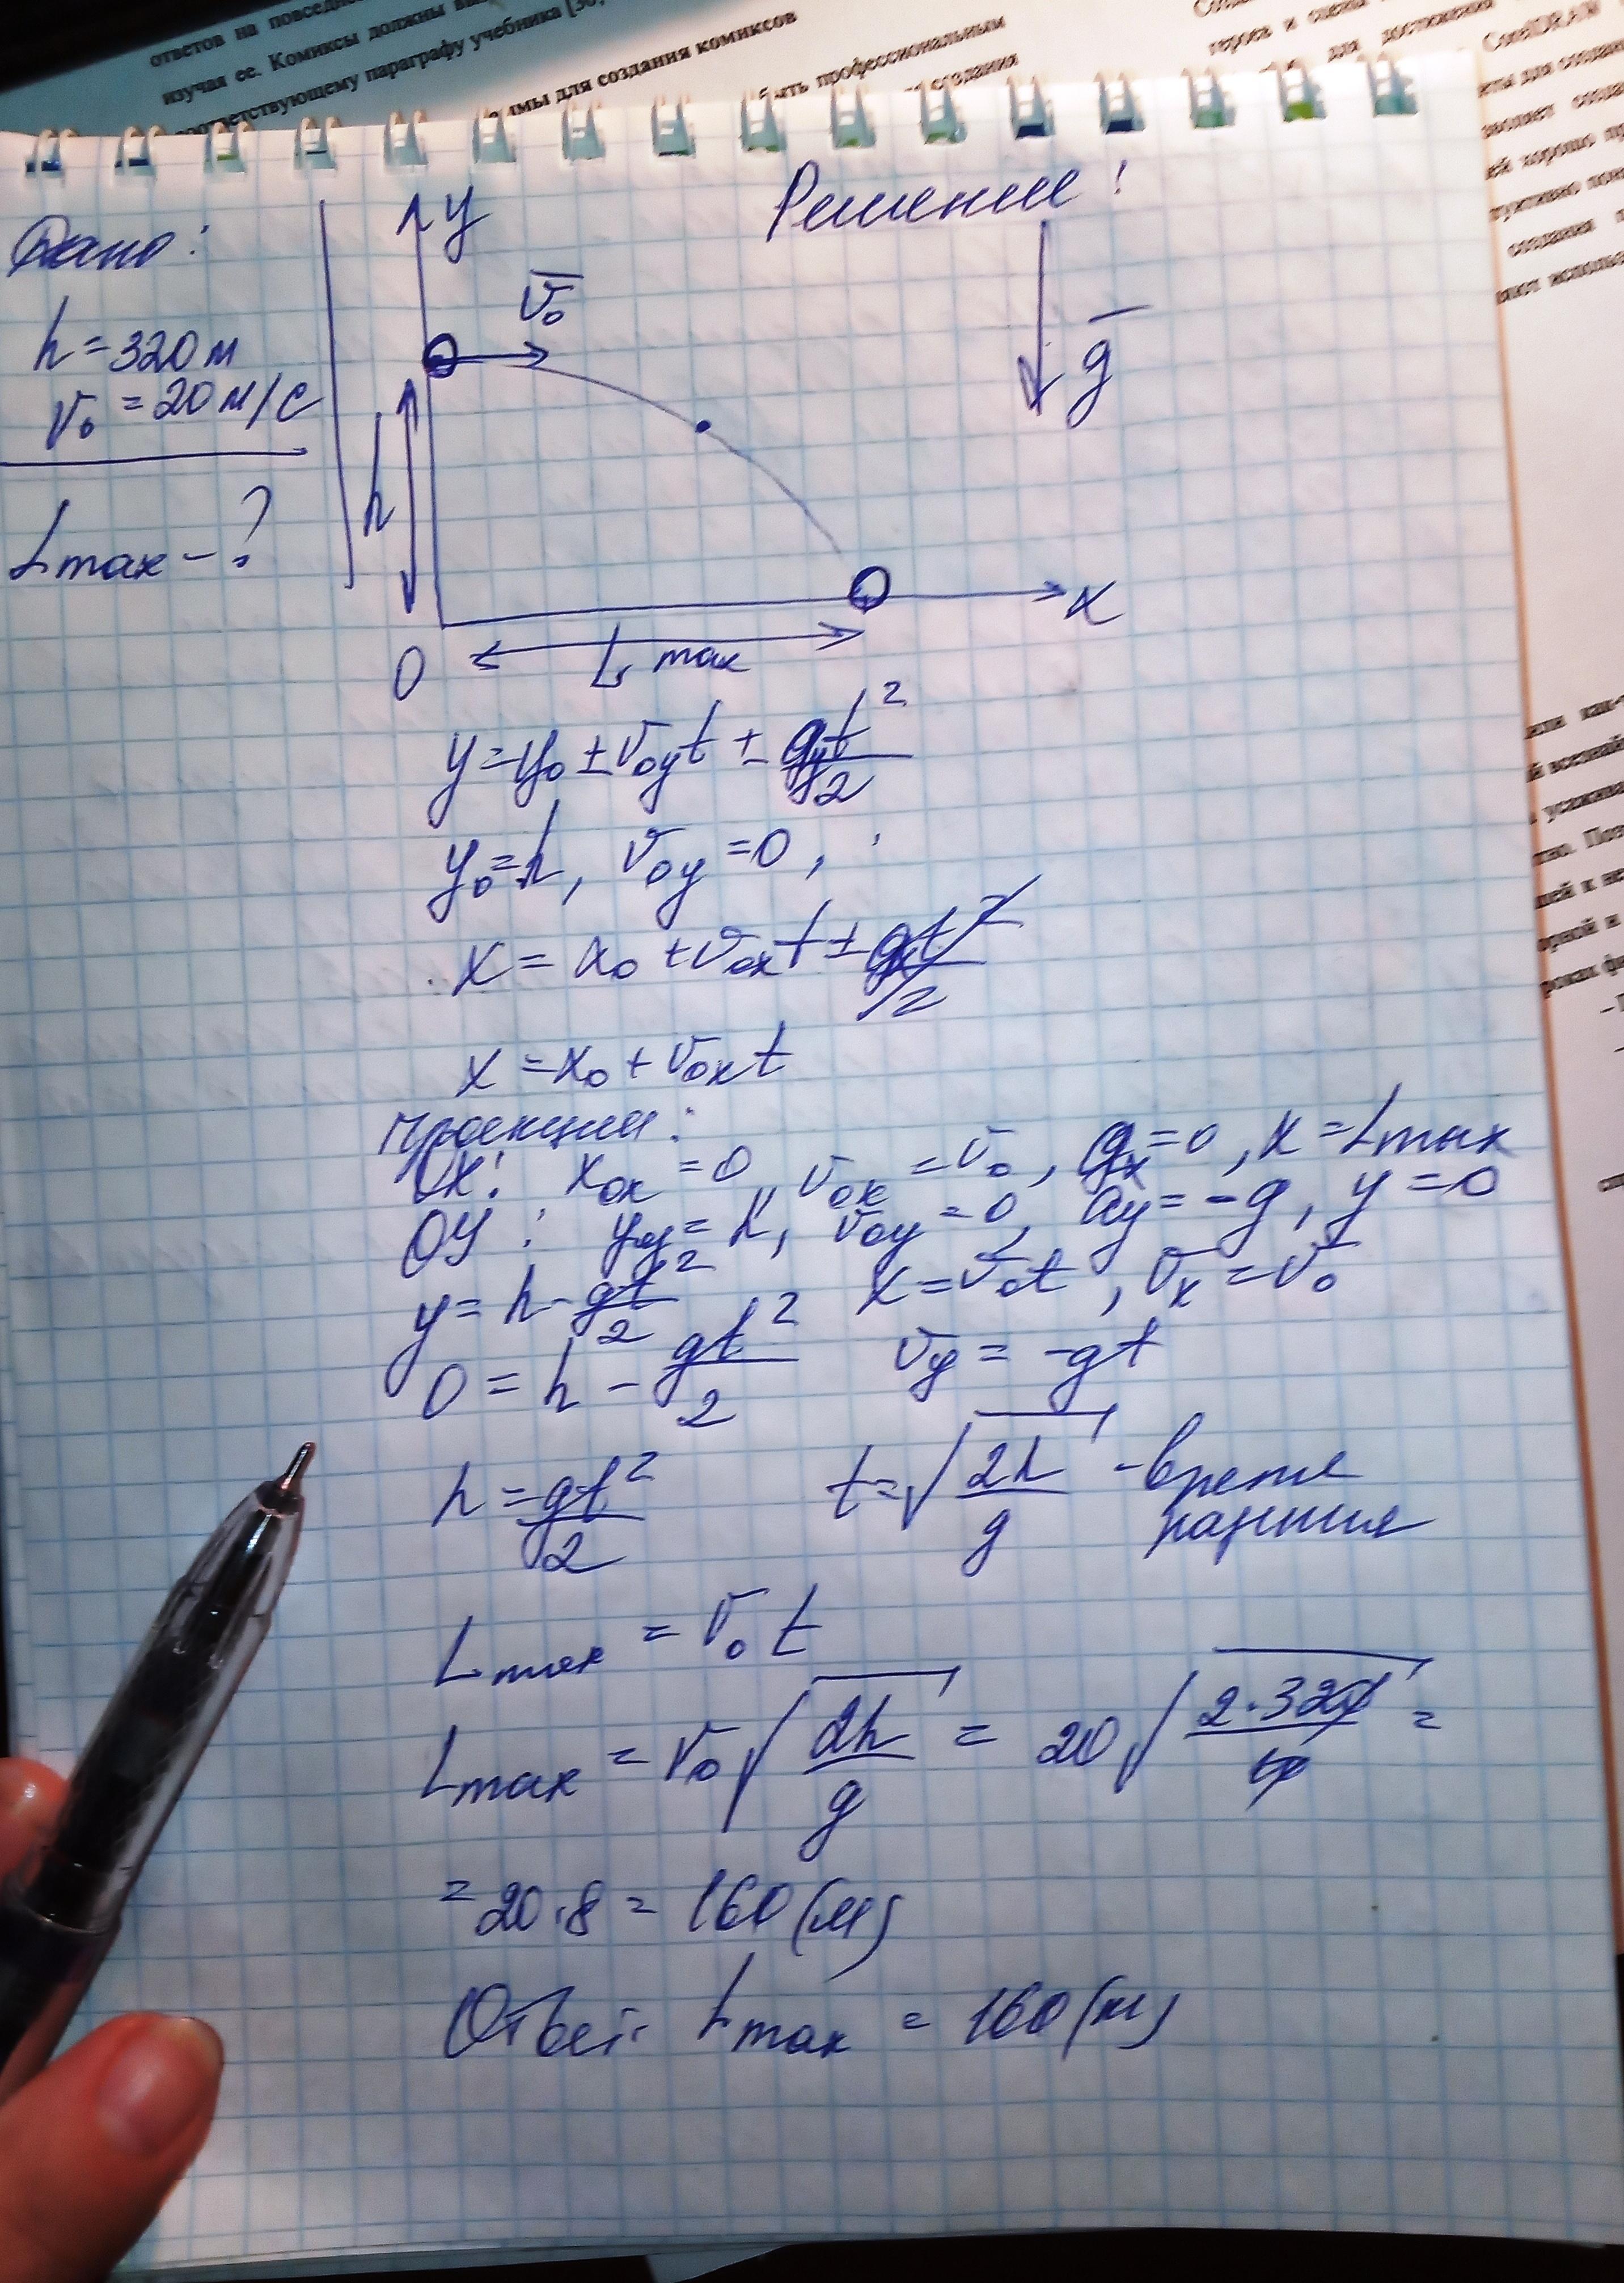 ответов на
изучая ее. Комиксы должны
соответствующему параграфу учебника [30]
для создания комиксов
быть профессиональным
создания
героев и
для достижения
CorelDRAW
для создания
хорошо
создания
Решение:
Дано:
y
h = 320 м
v₀ = 20 м/с
Lmax - ?
v̅₀
g̅
h
x
0
L max
y = y₀ ± v₀yt ± gyt²/2
y₀ = h, v₀y = 0,
x = x₀ + v₀xt ± gxt²/2
x = x₀ + v₀xt
проекции:
OX: x₀x = 0, v₀x = v₀, gx = 0, x = Lmax
OY: y₀y = h, v₀y = 0, ay = -g, y = 0
y = h - gt²/2 x = v₀t, vx = v₀
0 = h - gt²/2 vy = -gt
h = gt²/2 t = √(2h/g) - время
падения
Lmax = v₀t
Lmax = v₀√(2h/g) = 20√(2·320/10) =
= 20·8 = 160 (м)
Ответ: Lmax = 160 (м)